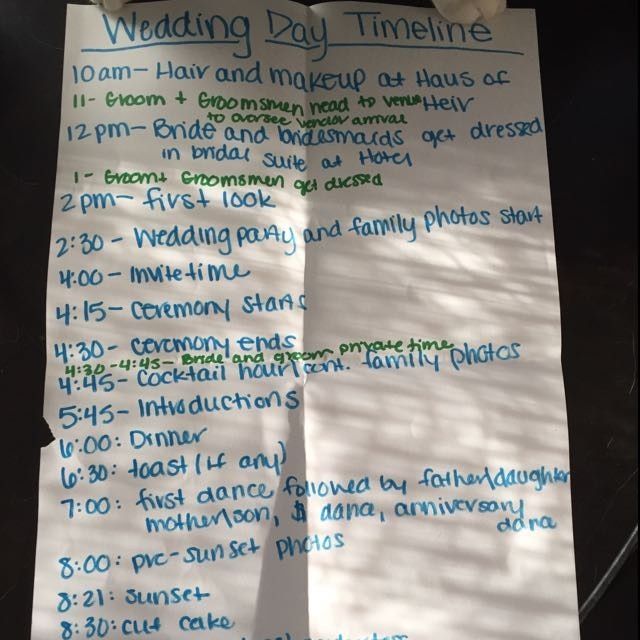 Wedding Day Timeline
10am- Hair and makeup at Haus of
Heir
11- Groom + Groomsmen head to venue
to oversee vendor arrival
12pm- Bride and bridesmaids get dressed
in bridal suite at Hotel
1- Groom + Groomsmen get dressed
2pm- first look
2:30- Wedding party and family photos start
4:00- Invite time
4:15- ceremony starts
4:30- ceremony ends
4:30-4:45- Bride and groom private time
4:45- Cocktail hour/cont. family photos
5:45- Introductions
6:00: Dinner
6:30: toast (if any)
7:00: first dance followed by father/daughter
mother/son, $ dance, anniversary
dance
8:00: pre-sunset photos
8:21: sunset
8:30: cut cake